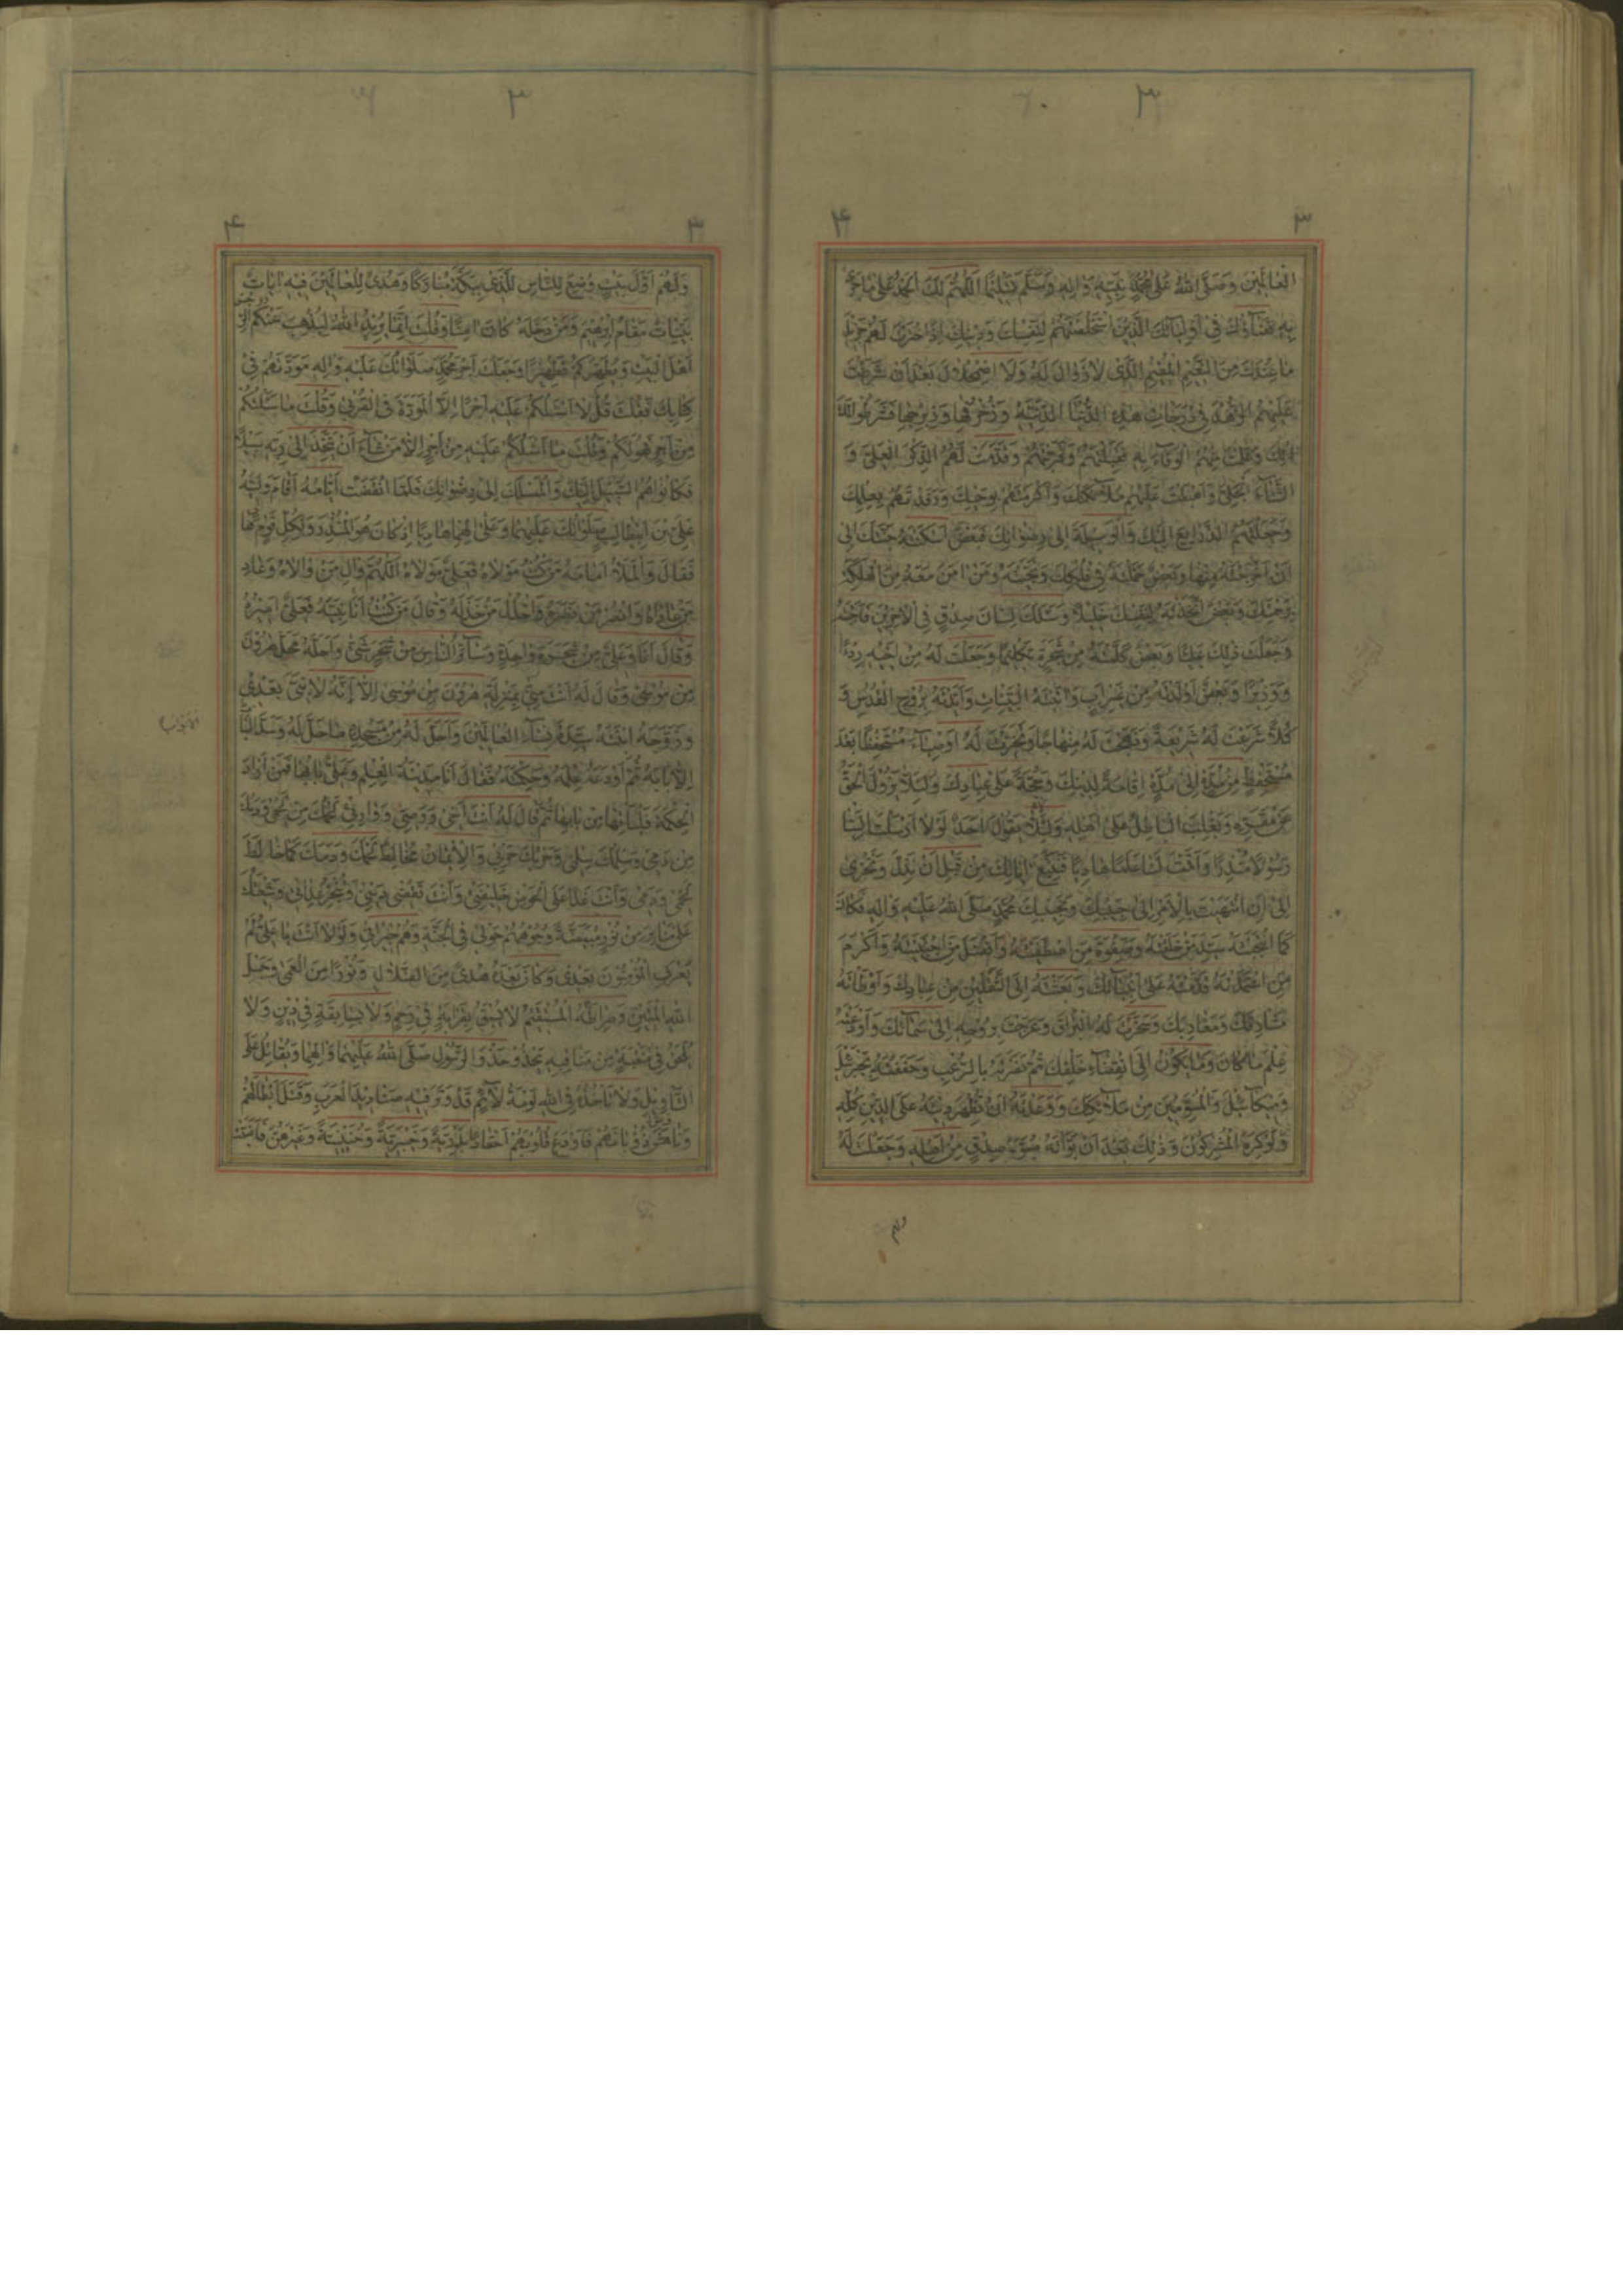 ۳
۳ ۴
العالمين وصلى الله على محمد نبيه واله وسلم تسليما اللهم لك الحمد على ما جرى
به قضاؤك في اوليائك الذين استخلصتهم لنفسك ودينك اذ اخترت لهم جزيل
ما عندك من النعيم المقيم الذي لا زوال له ولا اضمحلال بعد ان شرطت
عليهم الزهد في درجات هذه الدنيا الدنية وزخرفها وزبرجها فشرطوا لك
ذلك وعلمت منهم الوفاء به فقبلتهم وقربتهم وقدمت لهم الذكر العلي و
الثناء الجلي واهبطت عليهم ملائكتك واكرمتهم بوحيك ورفدتهم بعلمك
وجعلتهم الذرايع اليك والوسيلة الى رضوانك فبعض اسكنته جنتك الى
ان اخرجته منها وبعض حملته في فلكك ونجيته ومن امن معه من الهلكة
برحمتك وبعض اتخذته لنفسك خليلا وسئلك لسان صدق في الاخرين فاجبته
وجعلت ذلك عليا وبعض كلمته من شجرة تكليما وجعلت له من اخيه ردءا
ووزيرا وبعض اولدته من غير اب واتيته البينات وايدته بروح القدس و
كلا شرعت له شريعة ونهجت له منهاجا وتخيرت له اوصياء مستحفظا بعد
مستحفظ من مدة الى مدة اقامة لدينك وحجة على عبادك ولئلا يزول الحق
عن مقره ويغلب الباطل على اهله ولئلا يقول احد لولا ارسلت الينا
رسولا منذرا واقمت لنا علما هاديا فنتبع اياتك من قبل ان نذل ونخزى
الى ان انتهيت بالامر الى حبيبك ونجيبك محمد صلى الله عليه واله فكان
كما انتجبته سيد من خلقته وصفوة من اصطفيته وافضل من اجتبيته واكرم
من اعتمدته قدمته على انبيائك وبعثته الى الثقلين من عبادك واوطاته
مشارقك ومغاربك وسخرت له البراق وعرجت بروحه الى سمائك واودعته
علم ما كان وما يكون الى انقضاء خلقك ثم نصرته بالرعب وحففته بجبرئيل
وميكائيل والمسومين من ملائكتك ووعدته ان تظهر دينه على الدين كله
ولو كره المشركون وذلك بعد ان بواته مبوء صدق من اهله وجعلت له
ولهم
۳
۳ ۴
ولهم اول بيت وضع للناس للذي ببكة مباركا وهدى للعالمين فيه ايات
بينات مقام ابرهيم ومن دخله كان امنا وقلت انما يريد الله ليذهب عنكم الرجس
اهل البيت ويطهركم تطهيرا وجعلت اجر محمد صلواتك عليه واله مودتهم في
كتابك فقلت قل لا اسئلكم عليه اجرا الا المودة في القربى وقلت ما سئلتكم
من اجر فهو لكم وقلت ما اسئلكم عليه من اجر الا من شاء ان يتخذ الى ربه سبيلا
فكانوا هم السبيل اليك والمسلك الى رضوانك فلما انقضت ايامه اقام وليه
علي بن ابيطالب صلواتك عليهما وعلى الهما هاديا اذ كان هو المنذر ولكل قوم هاد
فقال والملأ امامه من كنت مولاه فعلي مولاه اللهم وال من والاه وعاد
من عاداه وانصر من نصره واخذل من خذله وقال من كنت انا نبيه فعلي اميره
وقال انا وعلي من شجرة واحدة وسائر الناس من شجر شتى واحله محل هرون
من موسى وقال له انت مني بمنزلة هرون من موسى الا انه لا نبي بعدي
وزوجه ابنته سيدة نساء العالمين واحل له من مسجده ما حل له وسد الابواب
الا بابه ثم اودعه علمه وحكمته فقال انا مدينة العلم وعلي بابها فمن اراد
الحكمة فلياتها من بابها ثم قال له انت اخي ووصيي ووارثي لحمك من لحمي ودمك
من دمي وسلمك سلمي وحربك حربي والايمان مخالط لحمك ودمك كما خالط
لحمي ودمي وانت غدا على الحوض خليفتي وانت تقضي ديني وتنجز عداتي وشيعتك
على منابر من نور مبيضة وجوههم حولي في الجنة وهم جيراني ولولا انت يا علي لم
يعرف المؤمنون بعدي وكان بعده هدى من الضلال ونورا من العمى وحبل
الله المتين وصراطه المستقيم لا يسبق بقرابة في رحم ولا بسابقة في دين ولا
يلحق في منقبة من مناقبه يحذو حذو الرسول صلى الله عليهما والهما ويقاتل على
التاويل ولا تاخذه في الله لومة لائم قد وتر فيه صناديد العرب وقتل ابطالهم
وناهش ذؤبانهم فاودع قلوبهم احقادا بدرية وخيبرية وحنينية وغيرهن فاضبت